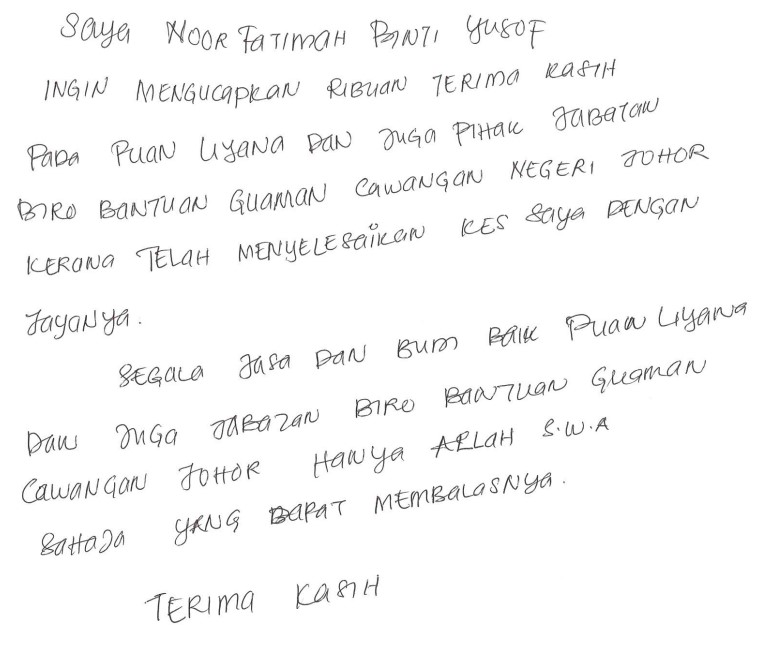 Saya NOOR FATIMAH BINTI YUSOF
INGIN MENGUCAPKAN RIBUAN TERIMA KASIH
PADA PUAN LIYANA DAN JUGA PIHAK JABATAN
BIRO BANTUAN GUAMAN CAWANGAN NEGERI JOHOR
KERANA TELAH MENYELESAIKAN KES SAYA DENGAN
JAYANYA.
SEGALA JASA DAN BUDI BAIK PUAN LIYANA
DAN JUGA JABATAN BIRO BANTUAN GUAMAN
CAWANGAN JOHOR HANYA ALLAH S.W.A
SAHAJA YANG DAPAT MEMBALASNYA.
TERIMA KASIH